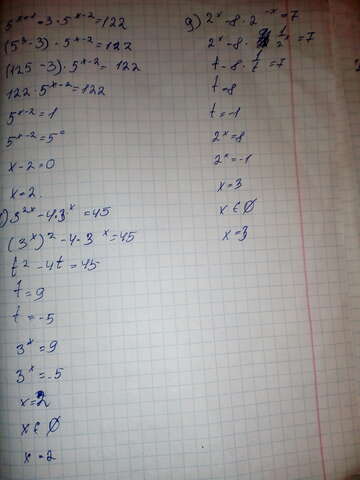 5ˣ⁺¹ - 3 · 5ˣ⁻² = 122
(5³ - 3) · 5ˣ⁻² = 122
(125 - 3) · 5ˣ⁻² = 122
122 · 5ˣ⁻² = 122
5ˣ⁻² = 1
5ˣ⁻² = 5⁰
x - 2 = 0
x = 2.
) 3²ˣ - 4 · 3ˣ = 45
(3ˣ)² - 4 · 3ˣ = 45
t² - 4t = 45
t = 9
t = -5
3ˣ = 9
3ˣ = -5
x = 2
x ∈ ∅
x = 2
g) 2ˣ - 8 · 2⁻ˣ = 7
2ˣ - 8 · 1/2ˣ = 7
t - 8 · 1/t = 7
t = 8
t = -1
2ˣ = 8
2ˣ = -1
x = 3
x ∈ ∅
x = 3